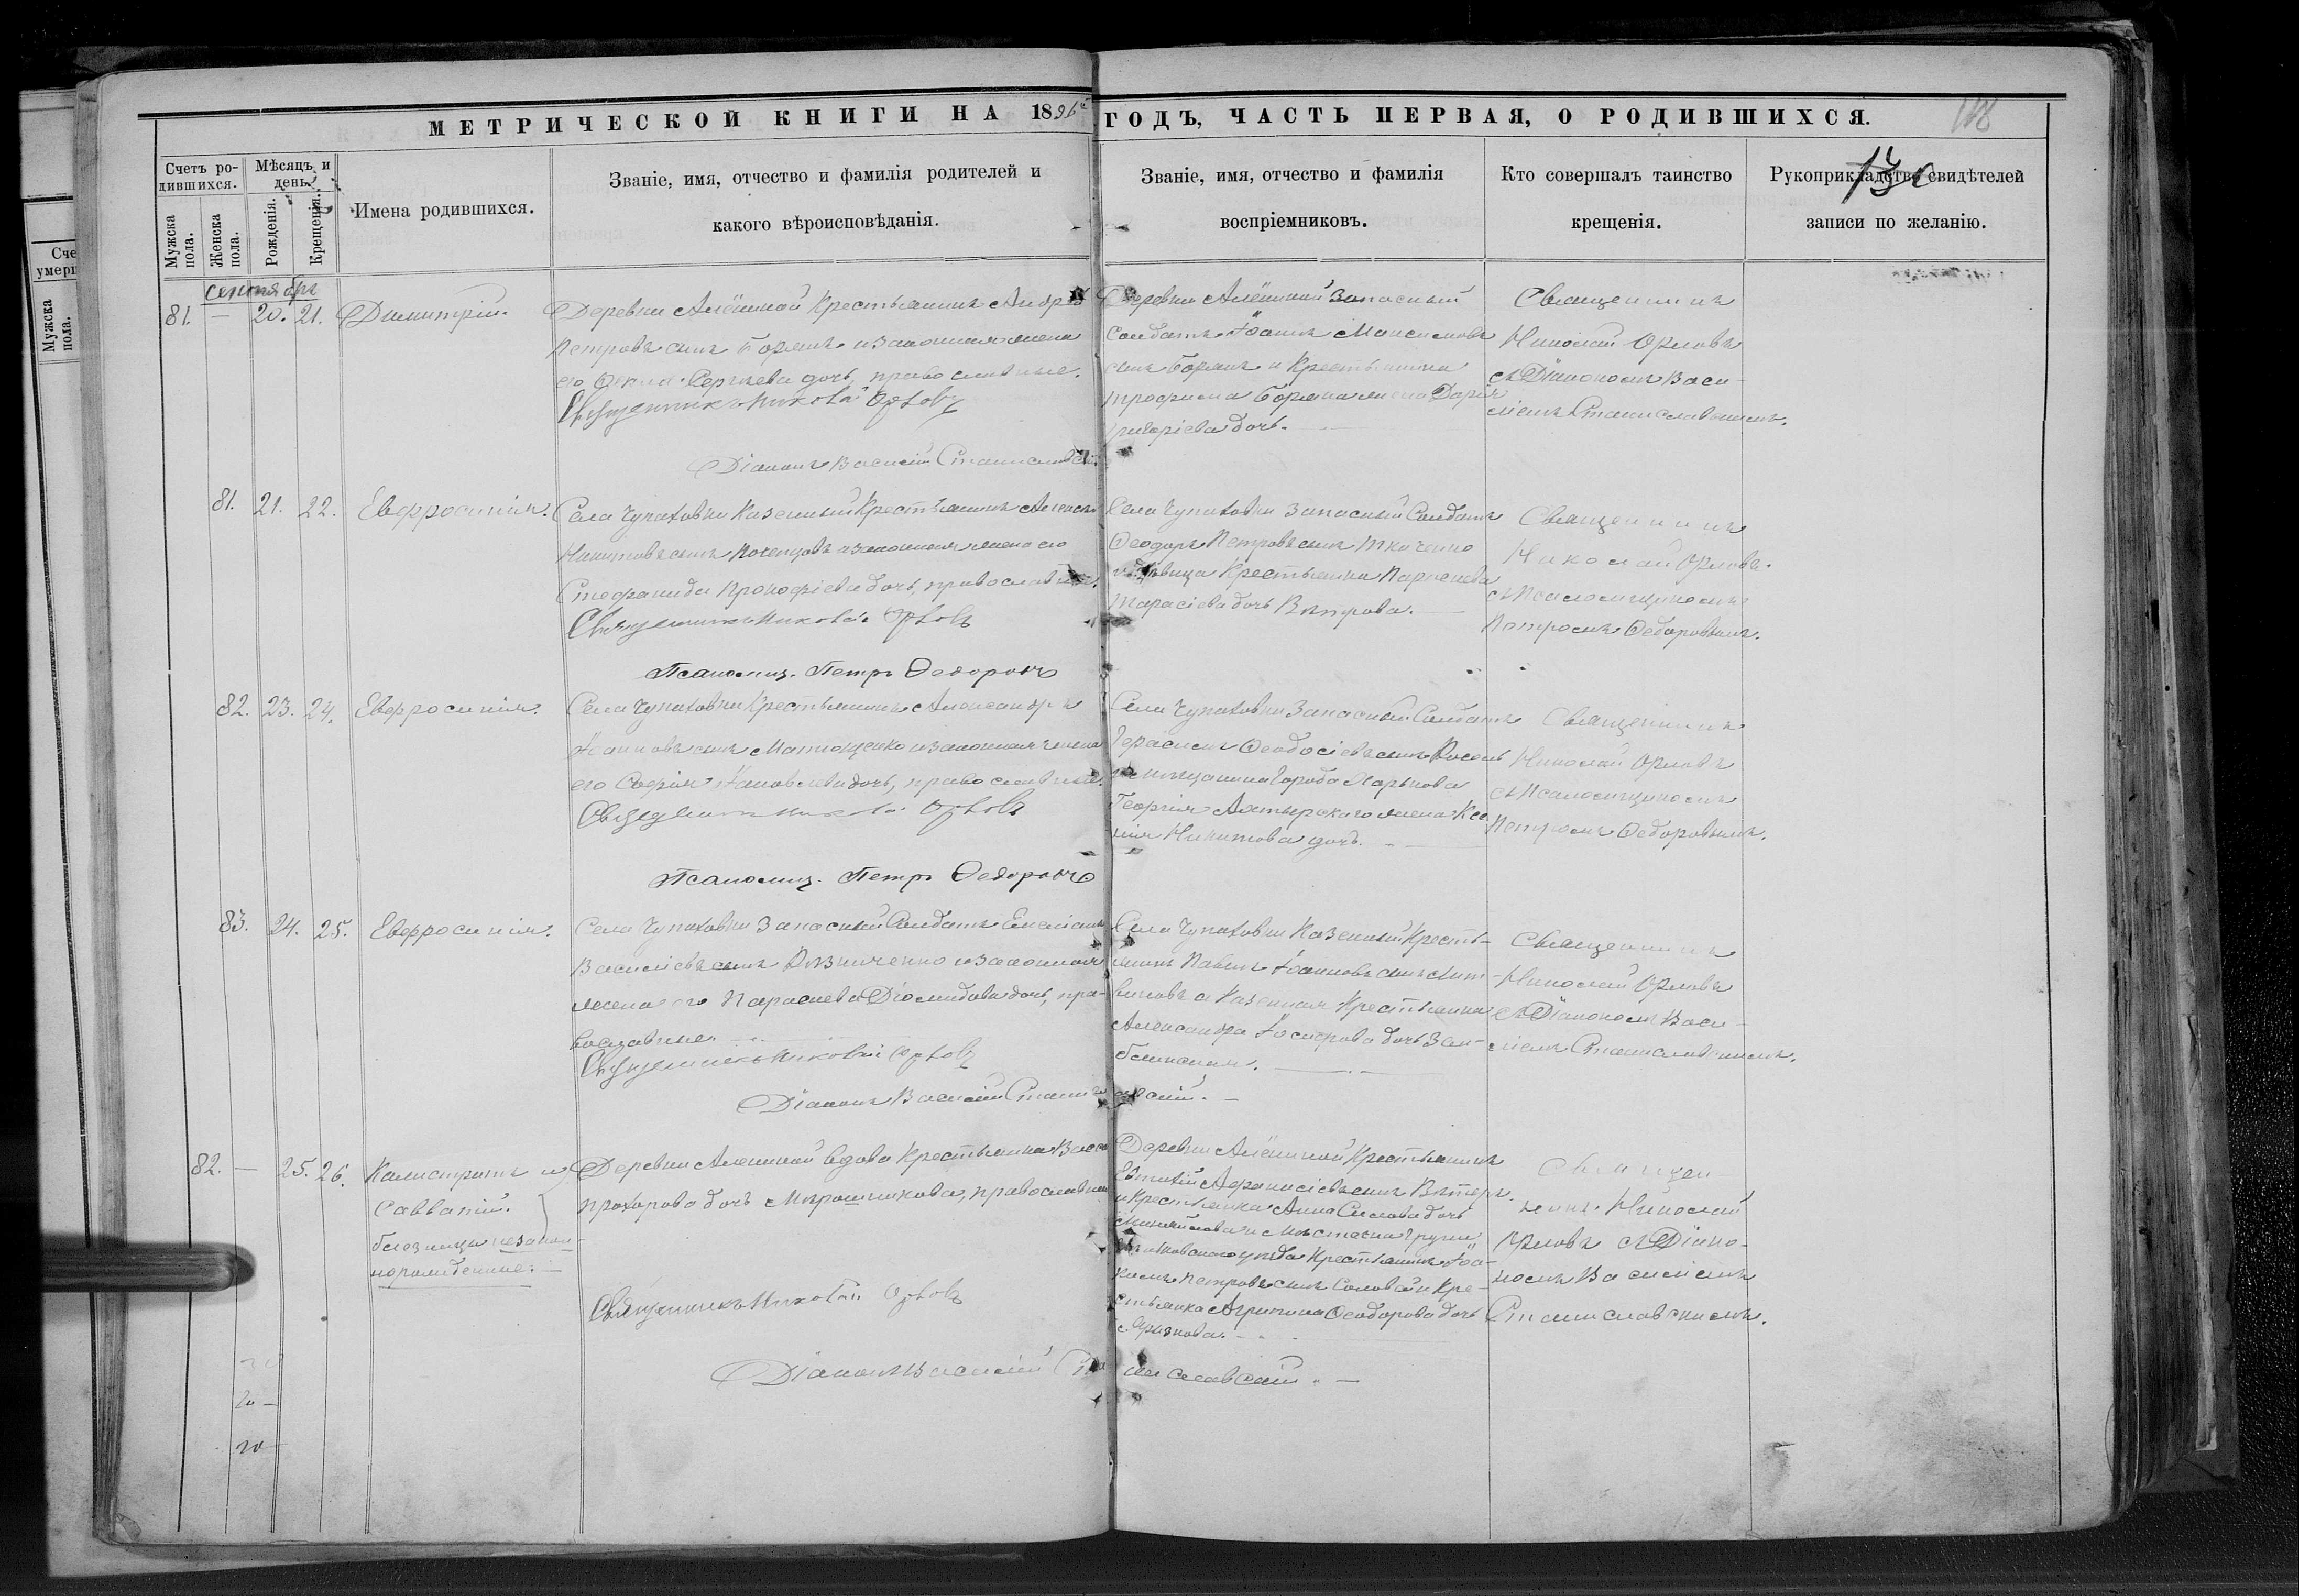 МЕТРИЧЕСКОЙ КНИГИ НА 1896й ГОДЪ, ЧАСТЬ ПЕРВАЯ, О РОДИВШИХСЯ.
Счетъ родившихся.
Мѣсяцъ и день.
Мужска пола.
Женска пола.
Рожденія.
Крещенія.
Имена родившихся.
Званіе, имя, отчество и фамилія родителей и
какого вѣроисповѣданія.
Званіе, имя, отчество и фамилія
воспріемниковъ.
Кто совершалъ таинство
крещенія.
Рукоприкладство свидѣтелей
записи по желанію.
Сче
умерш
Мужска
пола.
сентябрь
81. — 20. 21. Димитрій.
Деревни Алёшной Крестьянинъ Андрей
Петровъ сынъ Борякъ и законная жена
его Сергіева дочь, православные.
Священникъ Николай Орловъ
Діаконъ Василій Станиславскій
Деревни Алёшной Запасный
Солдатъ Іоаннъ Максимовъ
сынъ Борякъ и Крестьянина
Трофима Боряка жена Дарія
Григоріева дочь.
Священникъ
Николай Орловъ
съ Діакономъ Васи-
ліемъ Станиславскимъ.
81. 21. 22. Евфросинія.
Села Чупаховки Казенный Крестьянинъ Алексѣй
Никитовъ сынъ Коченцовъ и законная жена его
Стефанида Прокофіева дочь, православные.
Священникъ Николай Орловъ
Псаломщ. Петръ Ѳедоровъ
Села Чупаховки Запасный Солдатъ
Ѳеодоръ Петровъ сынъ Ткаченко
и вдовица Крестьянка Параскева
Тарасіева дочь Вѣтрова.
Священникъ
Николай Орловъ.
съ Псаломщикомъ
Петромъ Ѳедоровымъ.
82. 23. 24. Евфросинія.
Села Чупаховки Крестьянинъ Александръ
Іоанновъ сынъ Матющенко и законная жена
его Софія Іаковлева дочь, православные.
Священникъ Николай Орловъ
Псаломщ. Петръ Ѳедоровъ
Села Чупаховки Запасный Солдатъ
Герасимъ Ѳеодосіевъ сынъ
и мѣщанина Города Харькова
Георгія Ахтырскаго жена Ксе-
нія Никитова дочь.
Священникъ
Николай Орловъ
съ Псаломщикомъ
Петромъ Ѳедоровымъ.
83. 24. 25. Евфросинія.
Села Чупаховки Запасный Солдатъ Емеліанъ
Василіевъ сынъ Рѣзниченко и законная
жена его Параскева Діомидова дочь, пра-
вославные.
Священникъ Николай Орловъ
Діаконъ Василій Станиславскій.
Села Чупаховки Казенный Кресть-
янинъ Павелъ Іоанновъ сынъ Лит-
виновъ и Казенная Крестьянка
Александра Іосифова дочь Зам-
Священникъ
Николай Орловъ
съ Діакономъ Васи-
ліемъ Станиславскимъ.
82. — 25. 26. Калистратъ и
Савватій.
близнецы незакон-
норожденные.
Деревни Алешной вдова Крестьянка Васса
Прохорова дочь Мирошникова, православная
Священникъ Николай Орловъ
Діаконъ Василій Станиславскій.
Деревни Алёшной Крестьянинъ
Евтихій Афанасіевъ сынъ Вѣтеръ.
и Крестьянка Анна Силова дочь
и Мѣстечка Груни
уѣзда Крестьянинъ Іоа-
кимъ Петровъ сынъ Соловей и Кре-
стьянка Агрипина Ѳеодорова дочь
Священ-
никъ Николай
Орловъ съ Діако-
номъ Василіемъ
Станиславскимъ.
20 —
20 —